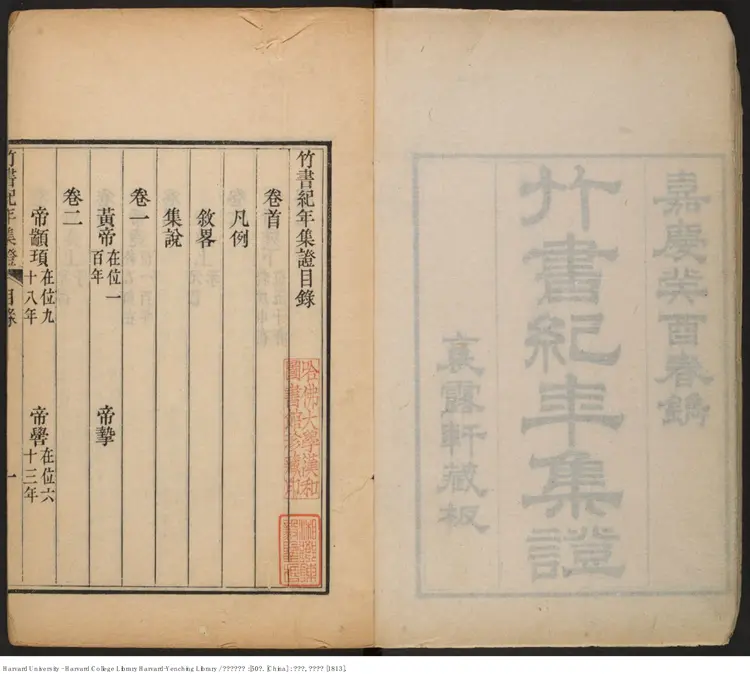 嘉慶癸酉春鐫
竹書紀年集證
裛露軒藏板
竹書紀年集證目錄
卷首
凡例
敘畧
集說
卷一
黃帝在位一百年
帝摯
卷二
帝顓頊在位九十八年
帝嚳在位六十三年
竹書紀年集證
目錄
一
哈佛大學漢和圖書館珍藏印
Harvard University - Harvard College Library Harvard-Yenching Library / ?????? : [50?. [China] : ???, ???? [1813].